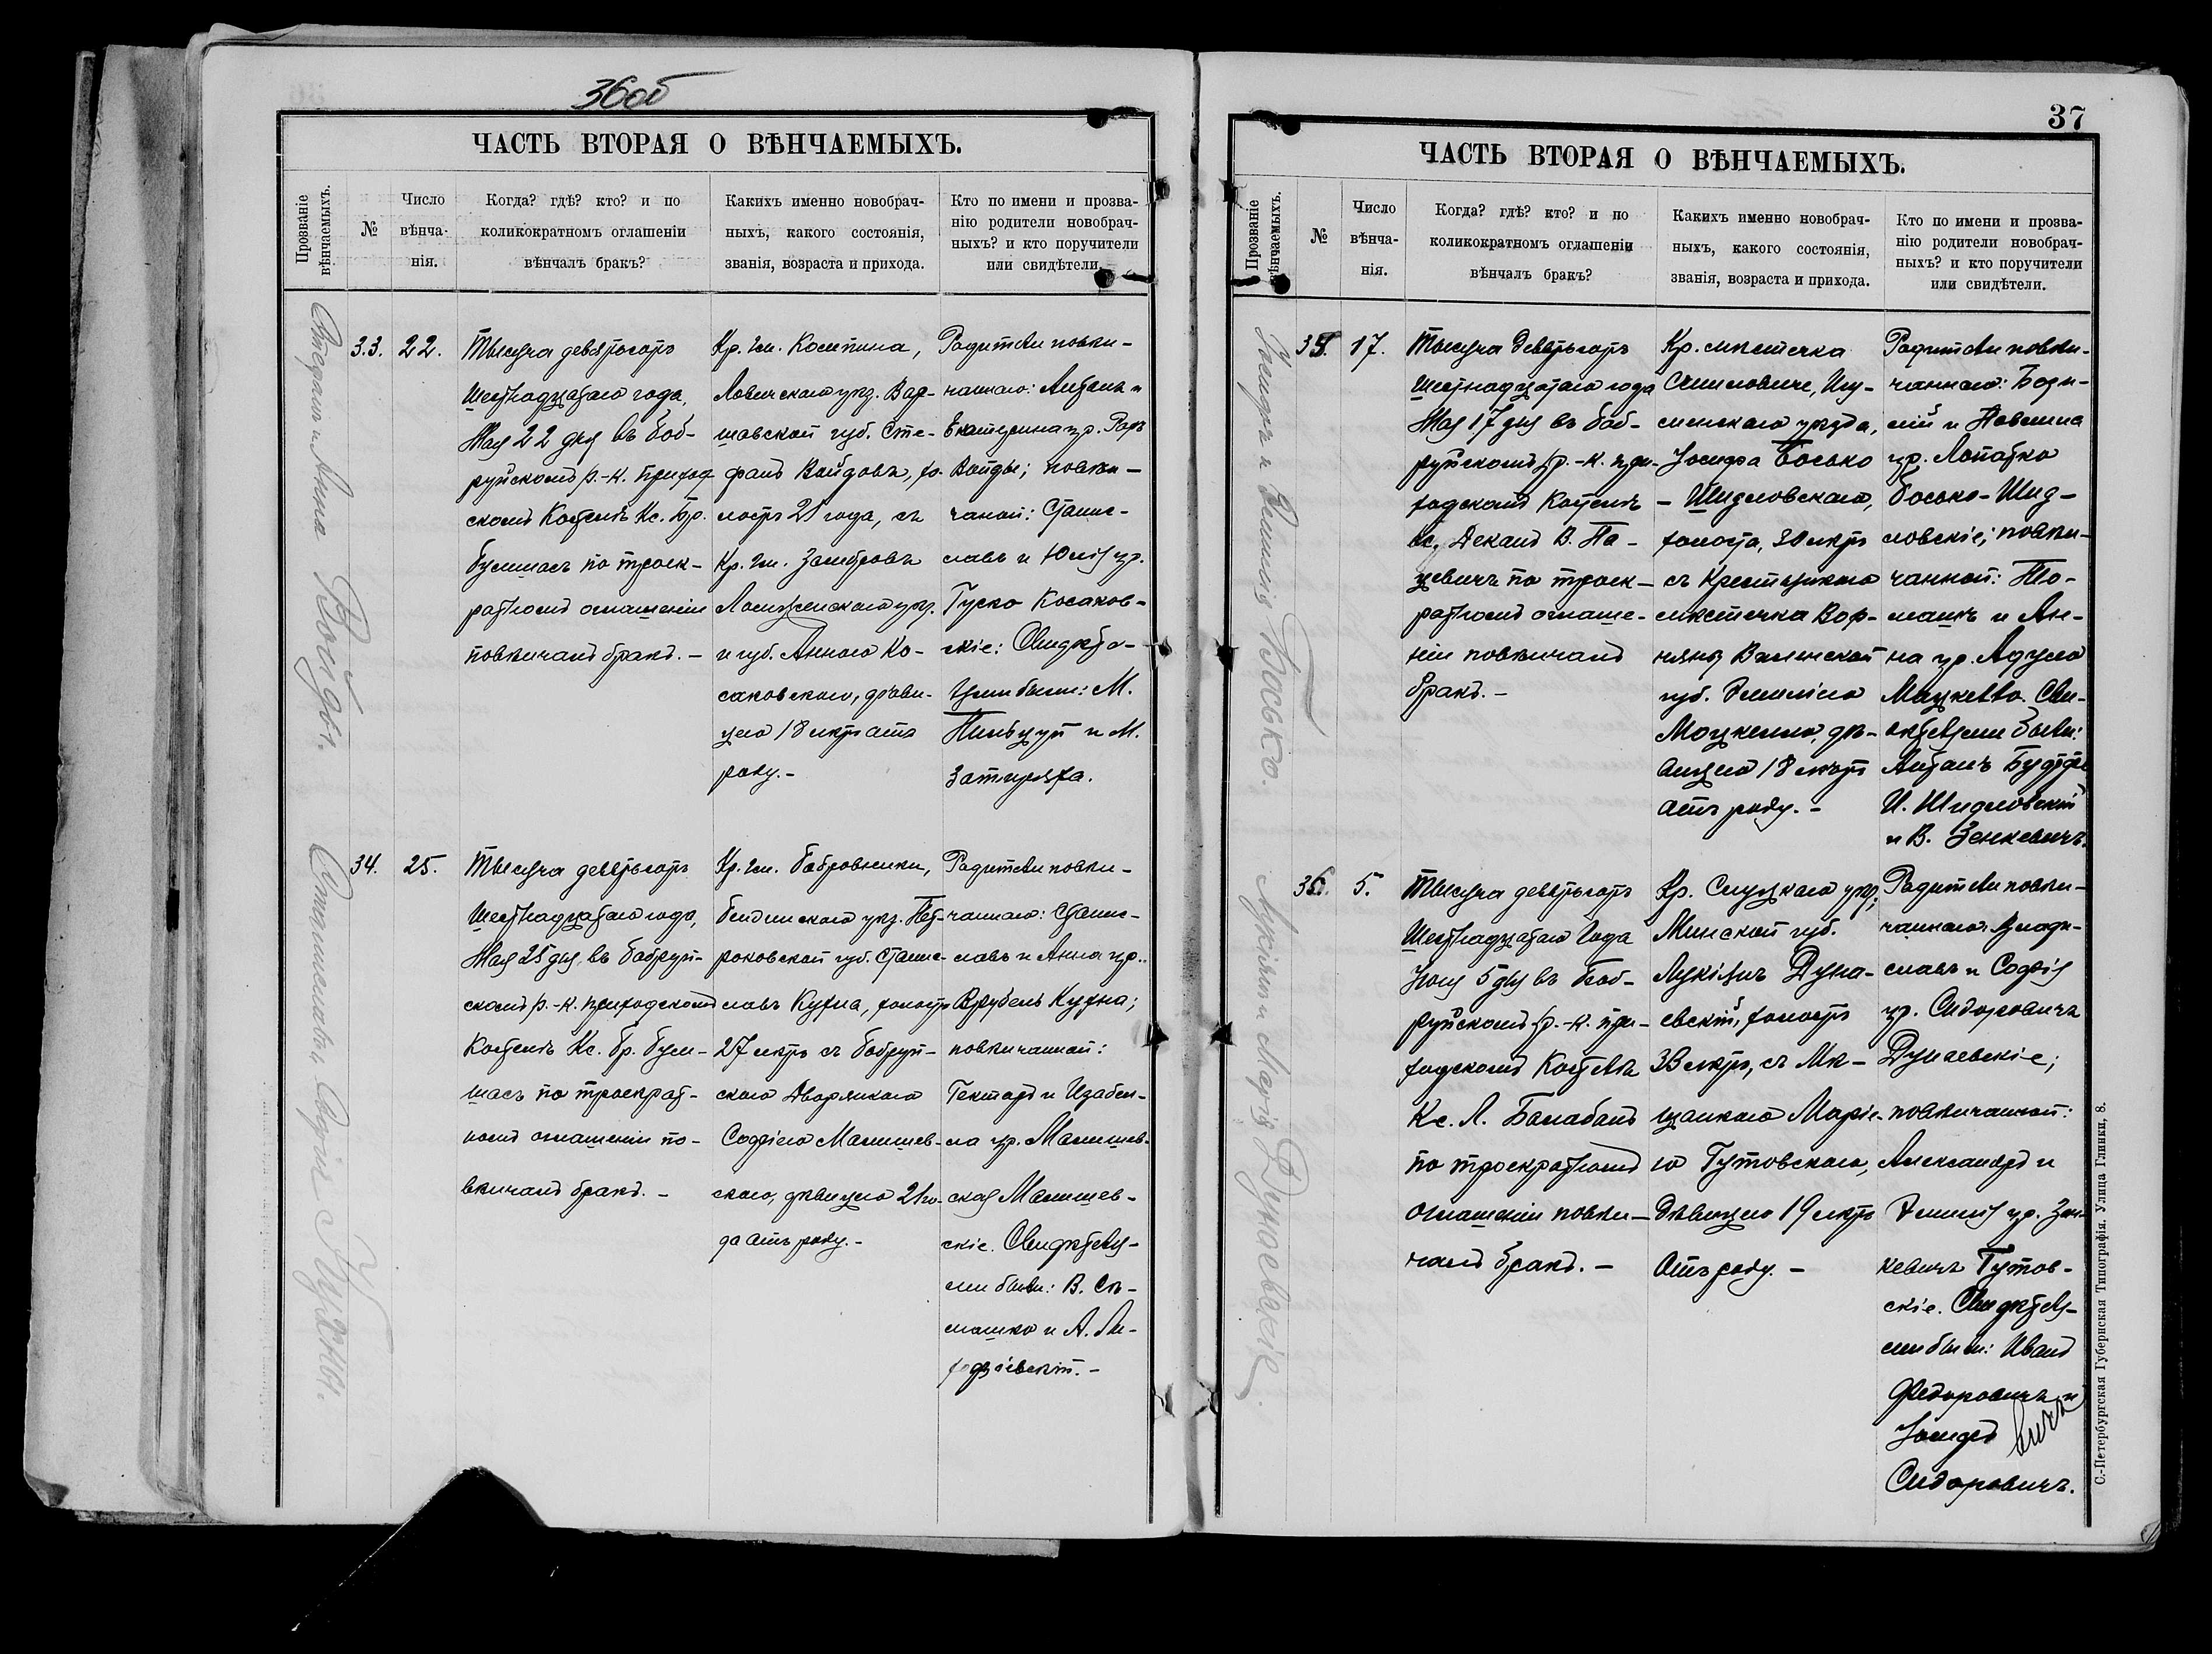 36об
ЧАСТЬ ВТОРАЯ О ВѢНЧАЕМЫХЪ.
Прозваніе
вѣнчаемыхъ.
№
Число
вѣнча-
нія.
Когда? гдѣ? кто? и по
коликократномъ оглашеніи
вѣнчалъ бракъ?
Какихъ именно новобрач-
ныхъ, какого состоянія,
званія, возраста и прихода.
Кто по имени и прозва-
нію родители новобрач-
ныхъ? и кто поручители
или свидѣтели.
Стефанъ и Анна Войды.
33.
22.
Тысяча девятьсотъ
шестнадцатаго года,
Мая 22 дня въ Боб-
руйскомъ р.-к. приход
скомъ Костелѣ Кс. Бр.
по троек-
ратномъ оглашеніи
повѣнчалъ бракъ. -
Кр. гм. Компина,
Ловичскаго уѣз. Вар-
шавской губ. Сте-
фанъ Войдовъ, хо-
лостъ 21 года, съ
Кр. гм. Замбровъ
Ломжинскаго уѣз.
и губ. Анною Ко-
саковскою, дѣви-
цею 18 лѣтъ отъ
роду. -
Родители повѣн-
чаннаго: Антонъ и
Екатерина ур.
Войды; повѣн-
чаной: Станис-
лавъ и Юлія ур.
Гуско Косаков-
скіе: Свидѣте-
лями были: М.
и М.
Станиславъ и Софія Кухны.
34.
25.
Тысяча девятьсотъ
шестнадцатаго года,
Мая 25 дня, въ Бобруй-
скомъ р.-к. приходскомъ
Костелѣ Кс. Бр.
по троекрат-
номъ оглашеніи по-
вѣнчалъ бракъ. -
Кр. гм. Бобровники,
Бендинскаго уѣз. Пет-
роковской губ. Станис-
лавъ Кухна, холостъ
27 лѣтъ съ Бобруй-
скою Дворянкою
Софіею Малишев-
скою, дѣвицею 21 го-
да отъ роду. -
Родители повѣн-
чаннаго: Станис-
лавъ и Анна ур.
Врубель Кухна;
повѣнчанной:
и Изабел-
ла ур. Малишев-
ская Малишев-
скіе. Свидѣтеля-
ми были: В. Се-
машко и А.
37
ЧАСТЬ ВТОРАЯ О ВѢНЧАЕМЫХЪ.
Прозваніе
вѣнчаемыхъ.
№
Число
вѣнча-
нія.
Когда? гдѣ? кто? и по
коликократномъ оглашеніи
вѣнчалъ бракъ?
Какихъ именно новобрач-
ныхъ, какого состоянія,
званія, возраста и прихода.
Кто по имени и прозва-
нію родители новобрач-
ныхъ? и кто поручители
или свидѣтели.
Іосифъ и Эмилія Босько.
35.
17.
Тысяча девятьсотъ
шестнадцатаго года
Мая 17 дня въ Боб-
руйскомъ р.-к. при-
ходскомъ Костелѣ
Кс. Деканъ В. Па-
цевичъ по троек-
ратномъ оглаше-
ніи повѣнчалъ
бракъ. -
Кр. мѣстечка
Смиловичи, Игу-
менскаго уѣзда,
Іосифа Босько
- Шидловскаго,
холоста, 30 лѣтъ
съ Крестьянкою
мѣстечка Вор-
няны Виленской
губ. Эмиліею
Моцкелло, дѣ-
вицею 18 лѣтъ
отъ роду. -
Родители повѣн-
чаннаго:
и Павлина
ур. Лопатко
Босько - Шид-
ловскіе; повѣн-
чанной: То-
машъ и Ан-
на ур. Адуло
Моцкелло. Сви-
дѣтелями были:
Антонъ
И. Шидловскій
и В. Зенкевичъ.
Лукіянъ и Марія Дунаевскіе.
36.
5.
Тысяча девятьсотъ
шестнадцатаго года
Іюня 5 дня въ Боб-
руйскомъ р.-к. при-
ходскомъ Костелѣ
Кс. Л. Балабанъ
по троекратномъ
оглашеніи повѣн-
чалъ бракъ. -
Кр. Слуцкаго уѣз.
Минской губ.
Лукіянъ Дуна-
евскій, холостъ
33 лѣтъ, съ Мѣ-
щанкою Маріе-
ю Гутовскою,
дѣвицею 19 лѣтъ
отъ роду. -
Родители повѣн-
чаннаго: Влади-
славъ и Софія
ур. Сидоровичъ
Дунаевскіе;
повѣнчанной:
Александръ и
Эмилія ур. Зен-
кевичъ Гутов-
скіе. Свидѣтеля-
ми были: Иванъ
Федоровичъ и
Іосифъ
Сидоровичъ.
С.-Петербургская Губернская Типографія. Улица Глинки, 8.